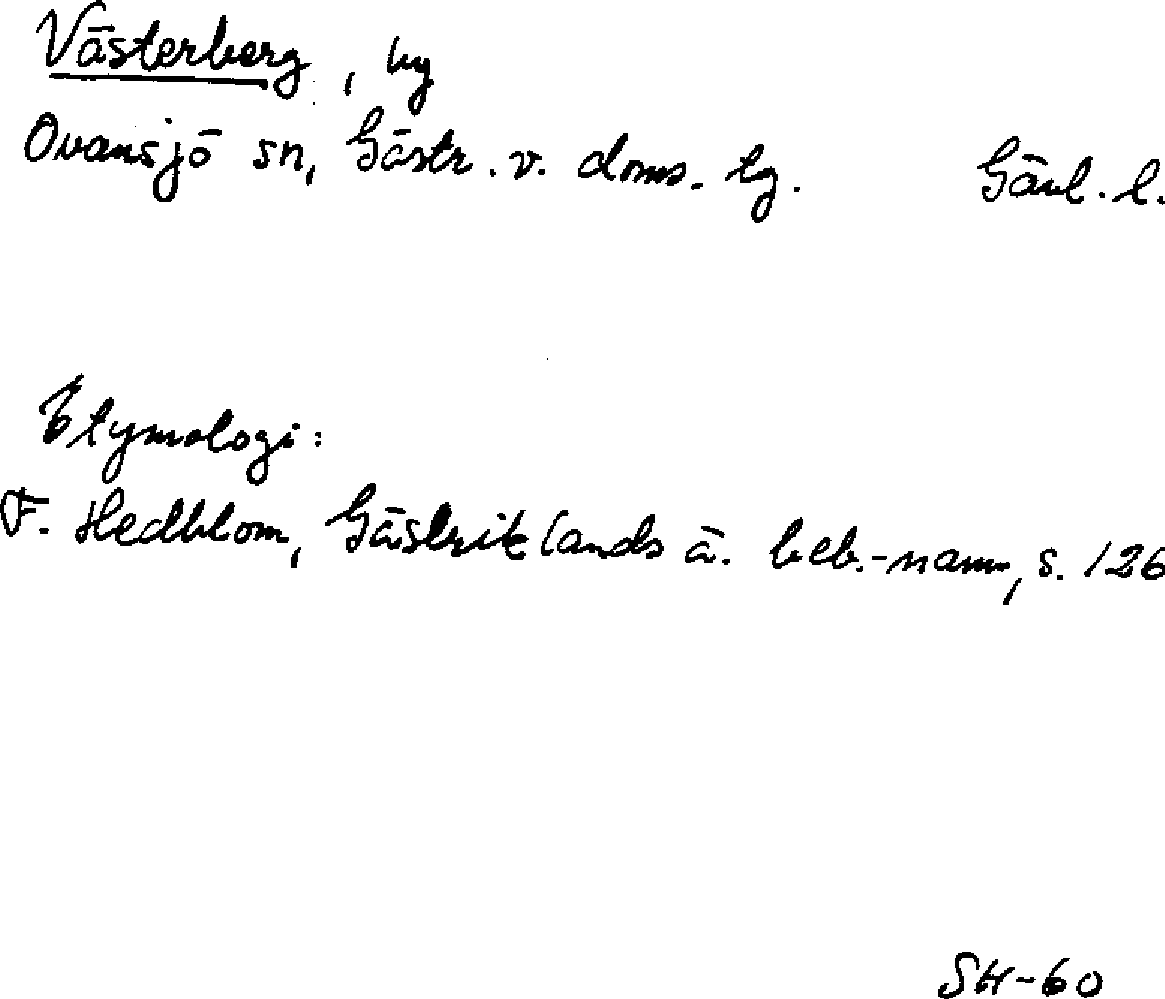 Västerberg, by
Ovansjö sn, Gästr. v. doms. tg. Gävl. l.
Etymologi:
F. Hedblom, Gästriklands ä. beb.-namn, s. 126
SH-60